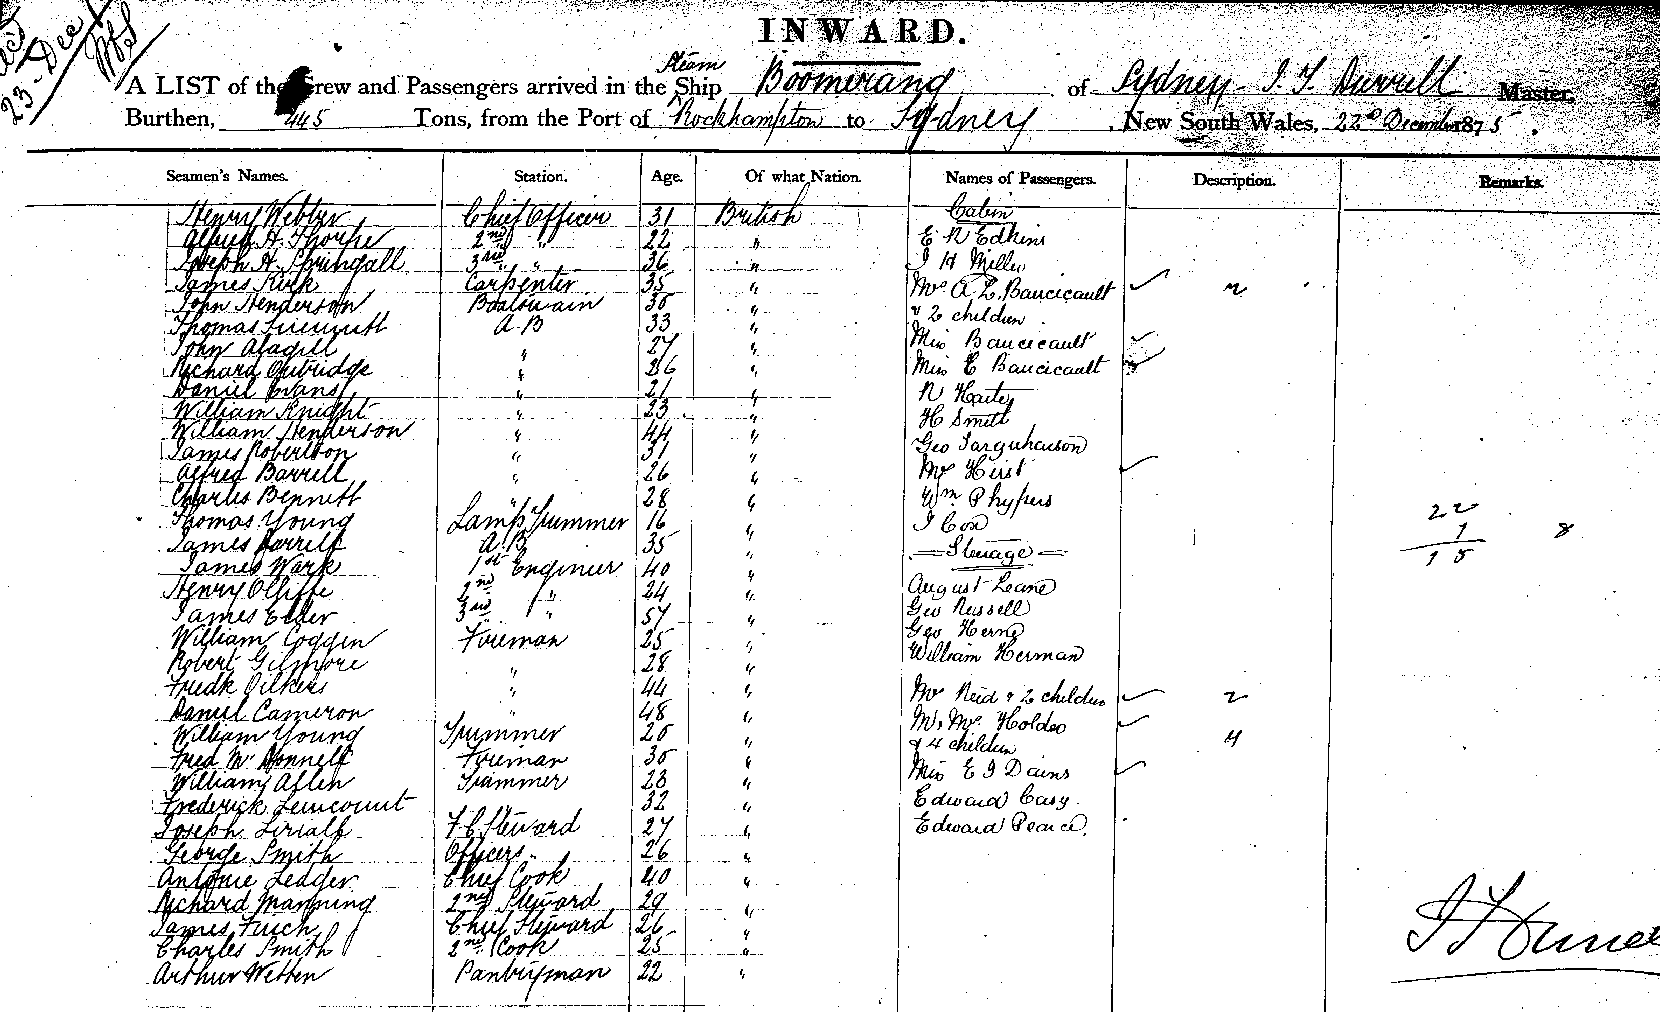 23 Dec
INWARD.
A LIST of the Crew and Passengers arrived in the Steam Ship Boomerang of Sydney J. F. Durrell Master,
Burthen, 445 Tons, from the Port of Rockhampton to Sydney, New South Wales, 22d December 1875.
Seamen's Names. Station. Age. Of what Nation. Names of Passengers. Description. Remarks.
Henry Webber Chief Officer 31 British Cabin
Alfred H. Thorpe 2nd " 22 " E R Edkins
Joseph H. Springall 3rd " 36 " J H Miller
James Kirk Carpenter 35 " Mrs A. L. Baucicault 2
John Henderson Boatswain 30 " & 2 children
Thomas A B 33 "
John 27 " Miss Baucicault
Richard Outridge " 26 " Miss E Baucicault
Daniel Evans " 21 " R Hartey
William Knight " 23 " H Smith
William Henderson " 44 " Geo Farquharson
James Robertson " 31 "
Alfred Barrell " 26 " Mrs Heist
Charles Bennett " 28 " Wm Phypers 22
Thomas Young Lamp Trimmer 16 " J Cox 7 8
James A.B 35 " Steerage 15
James Wark 1st Engineer 40 "
Henry Olliffe 2nd " 24 " August Leane
James Elder 3rd " 57 " Geo Russell
William Coggin Fireman 25 " Geo Herne
Robert Gilmore " 28 " William Herman
Fredk Vilkers " 44 " Mrs Reid & 2 children 2
Daniel Cameron " 48 " Mr Mrs Holdes
William Young Trimmer 20 " & 4 children 4
Fred McDonnell Fireman 30 " Miss E J Dains
William Allen Trimmer 23
Frederick Lemcount 32 " Edward Casy
Joseph F.C Steward 27 " Edward Pearce
George Smith Officers " 26 "
Antonie Ledger Chief Cook 40 "
Richard Manning 2nd Steward 29 "
James Finch Chief Steward 26 "
Charles Smith 2nd Cook 25 "
Arthur Wetten Pantryman 22 "